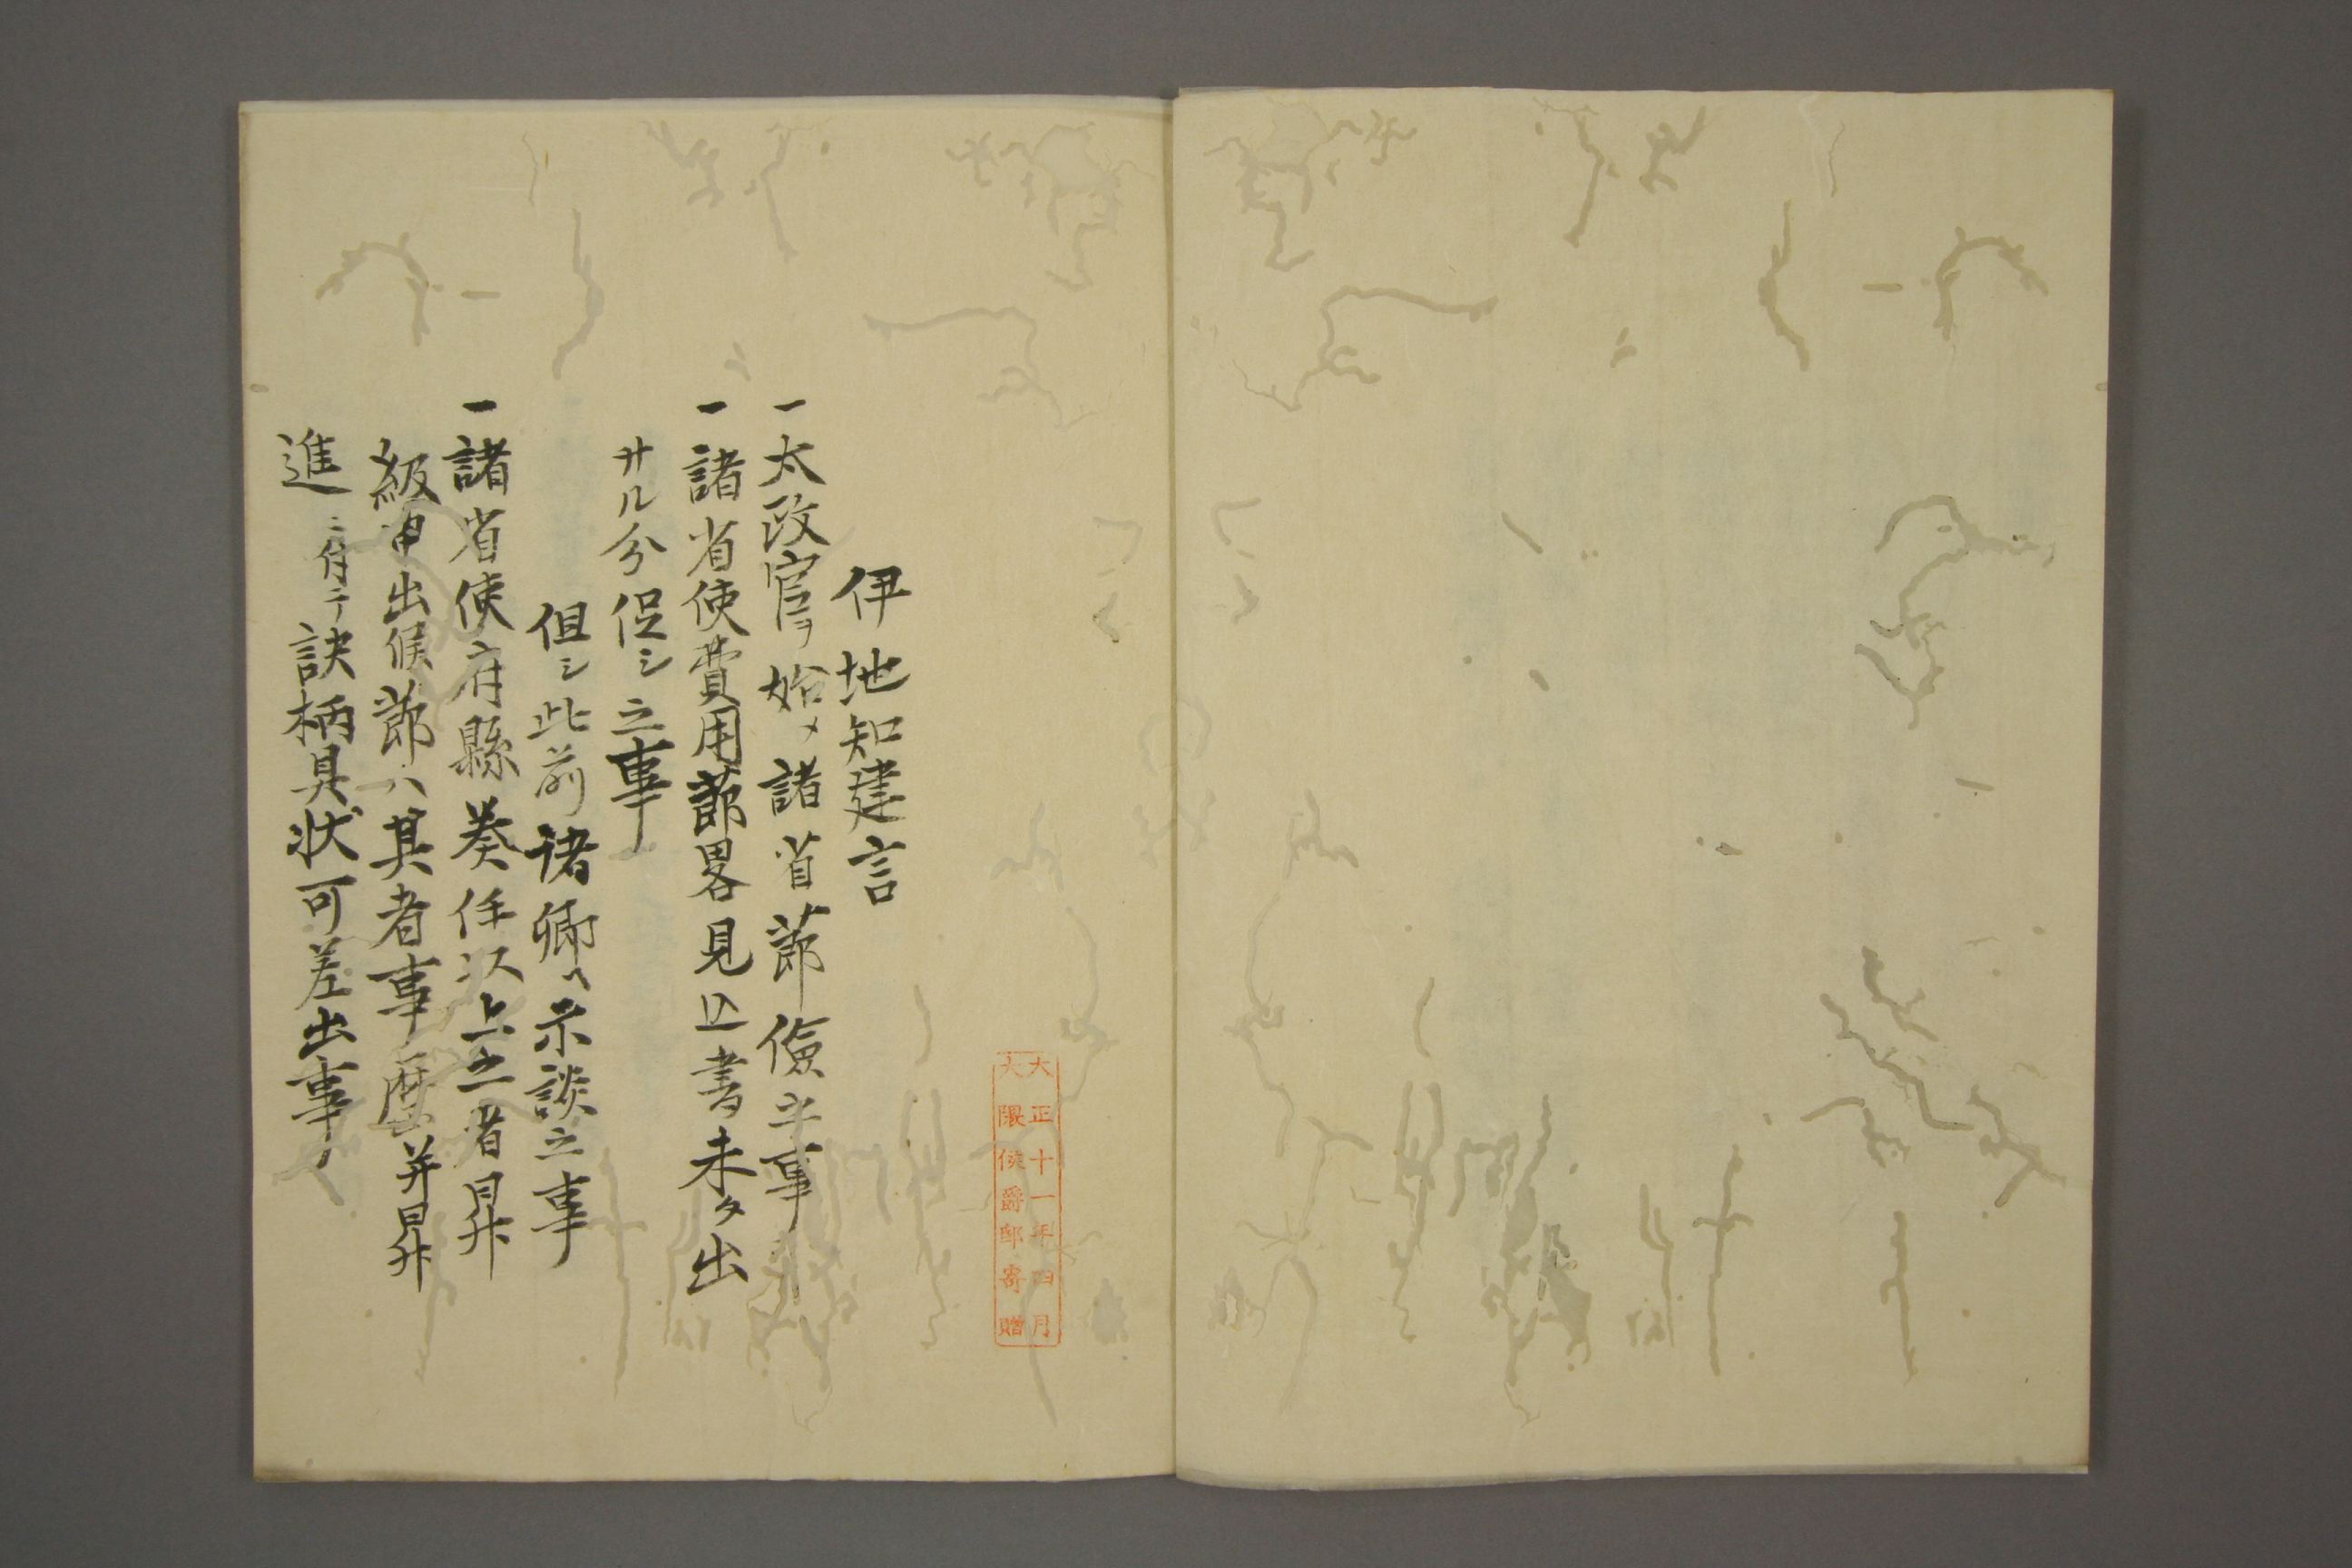 大正十一年四月
大隈侯爵邸寄贈
伊地知建言
一太政官ヲ始メ諸省節儉事
一諸省使費用節畧見込書未タ出
サル分促シ之事
但シ此前諸卿ヘ示談之事
一諸省使府縣奏任以上之者昇
級申出候節ハ其者事歴并昇
進ニ付テ訣柄具状可差出事